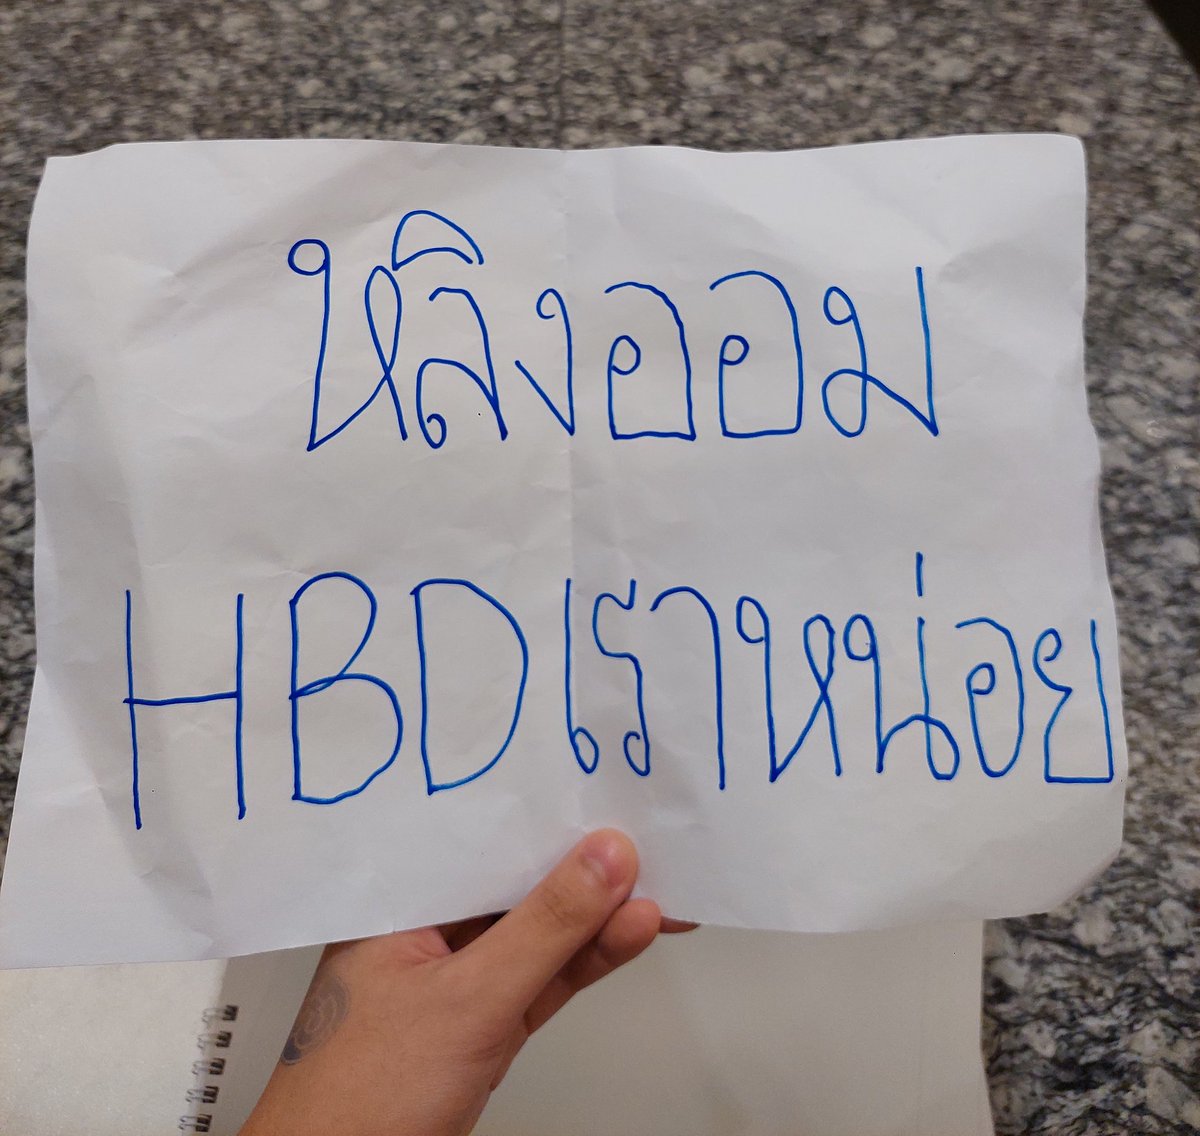 หลิงออม
HBDเราหน่อย